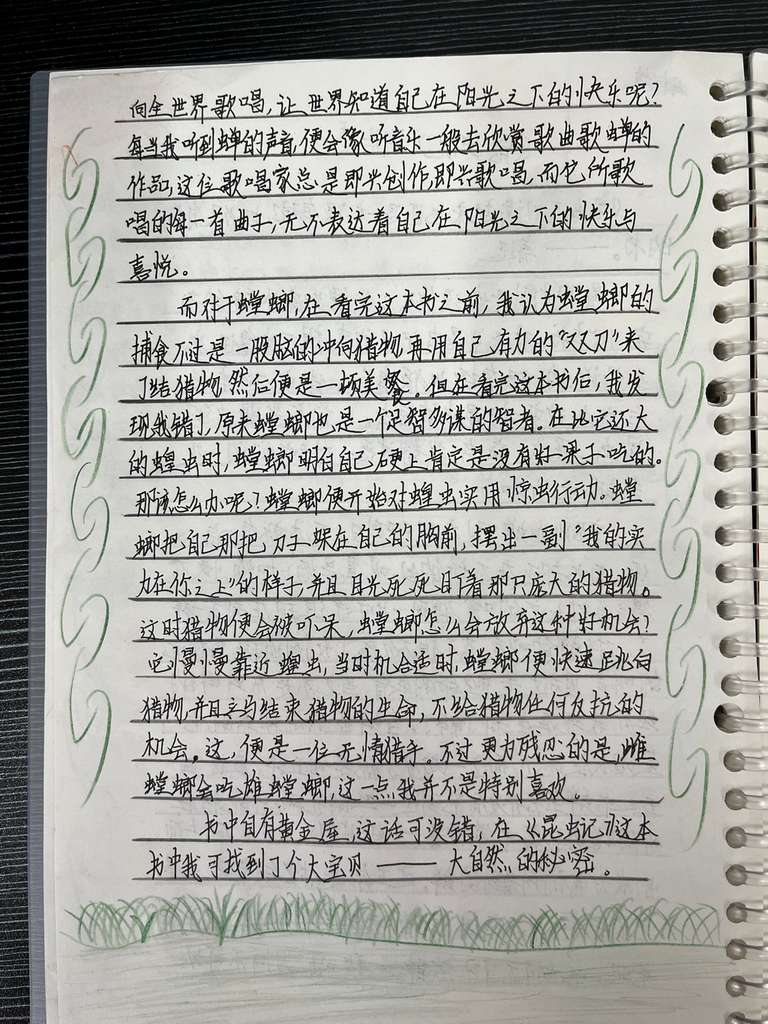 向全世界歌唱，让世界知道自己在阳光之下的快乐呢？
每当我听到蝉的声音，便会像听音乐一般去欣赏歌曲歌蝉的
作品，这位歌唱家总是即兴创作，即兴歌唱，而它所歌
唱的每一首曲子，无不表达着自己在阳光之下的快乐与
喜悦。
而对于螳螂，在看完这本书之前，我认为螳螂的
捕食不过是一股脑的冲向猎物，再用自己有力的“双刀”来
了结猎物，然后便是一顿美餐。但在看完这本书后，我发
现我错了，原来螳螂也是一个足智多谋的智者。在比它还大
的蝗虫时，螳螂明白自己硬上肯定是没有好果子吃的。
那该怎么办呢？螳螂便开始对蝗虫实用惊虫行动。螳
螂把自己那把刀子架在自己的胸前，摆出一副“我的实
力在你之上”的样子，并且目光死死盯着那只庞大的猎物。
这时猎物便会被吓呆，螳螂怎么会放弃这种好机会？
它慢慢靠近蝗虫，当时机合适时，螳螂便快速跳向
猎物，并且立马结束猎物的生命，不给猎物任何反抗的
机会。这，便是一位无情猎手。不过更为残忍的是，雌
螳螂会吃雄螳螂，这一点我并不是特别喜欢。
书中自有黄金屋，这话可没错，在《昆虫记》这本
书中我可找到了个大宝贝——大自然的秘密。